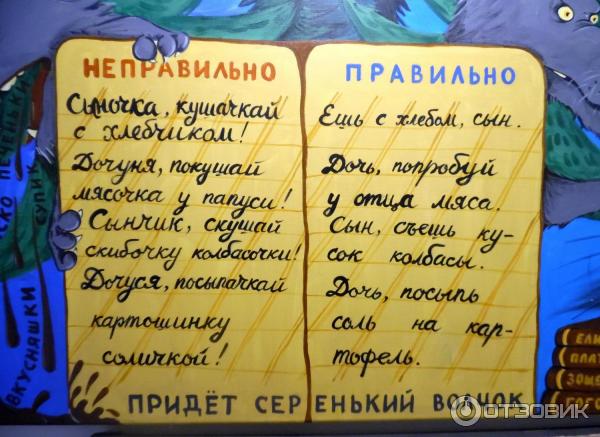 НЕПРАВИЛЬНО
Сыночка, кушачкай
с хлебчиком!
Дочуня, покушай
мясочка у папуси!
Сынчик, скушай
скибочку колбасочки!
Дочуся, посыпачкай
картошинку
соличкой!
ПРАВИЛЬНО
Ешь с хлебом, сын.
Дочь, попробуй
у отца мяса.
Сын, съешь ку-
сок колбасы.
Дочь, посыпь
соль на кар-
тофель.
ПРИДЁТ СЕРЕНЬКИЙ ВОЛЧОК
ПЕЧЕНЬКИ
СУПИК
ВКУСНЯШКИ
ОТЗОВИК